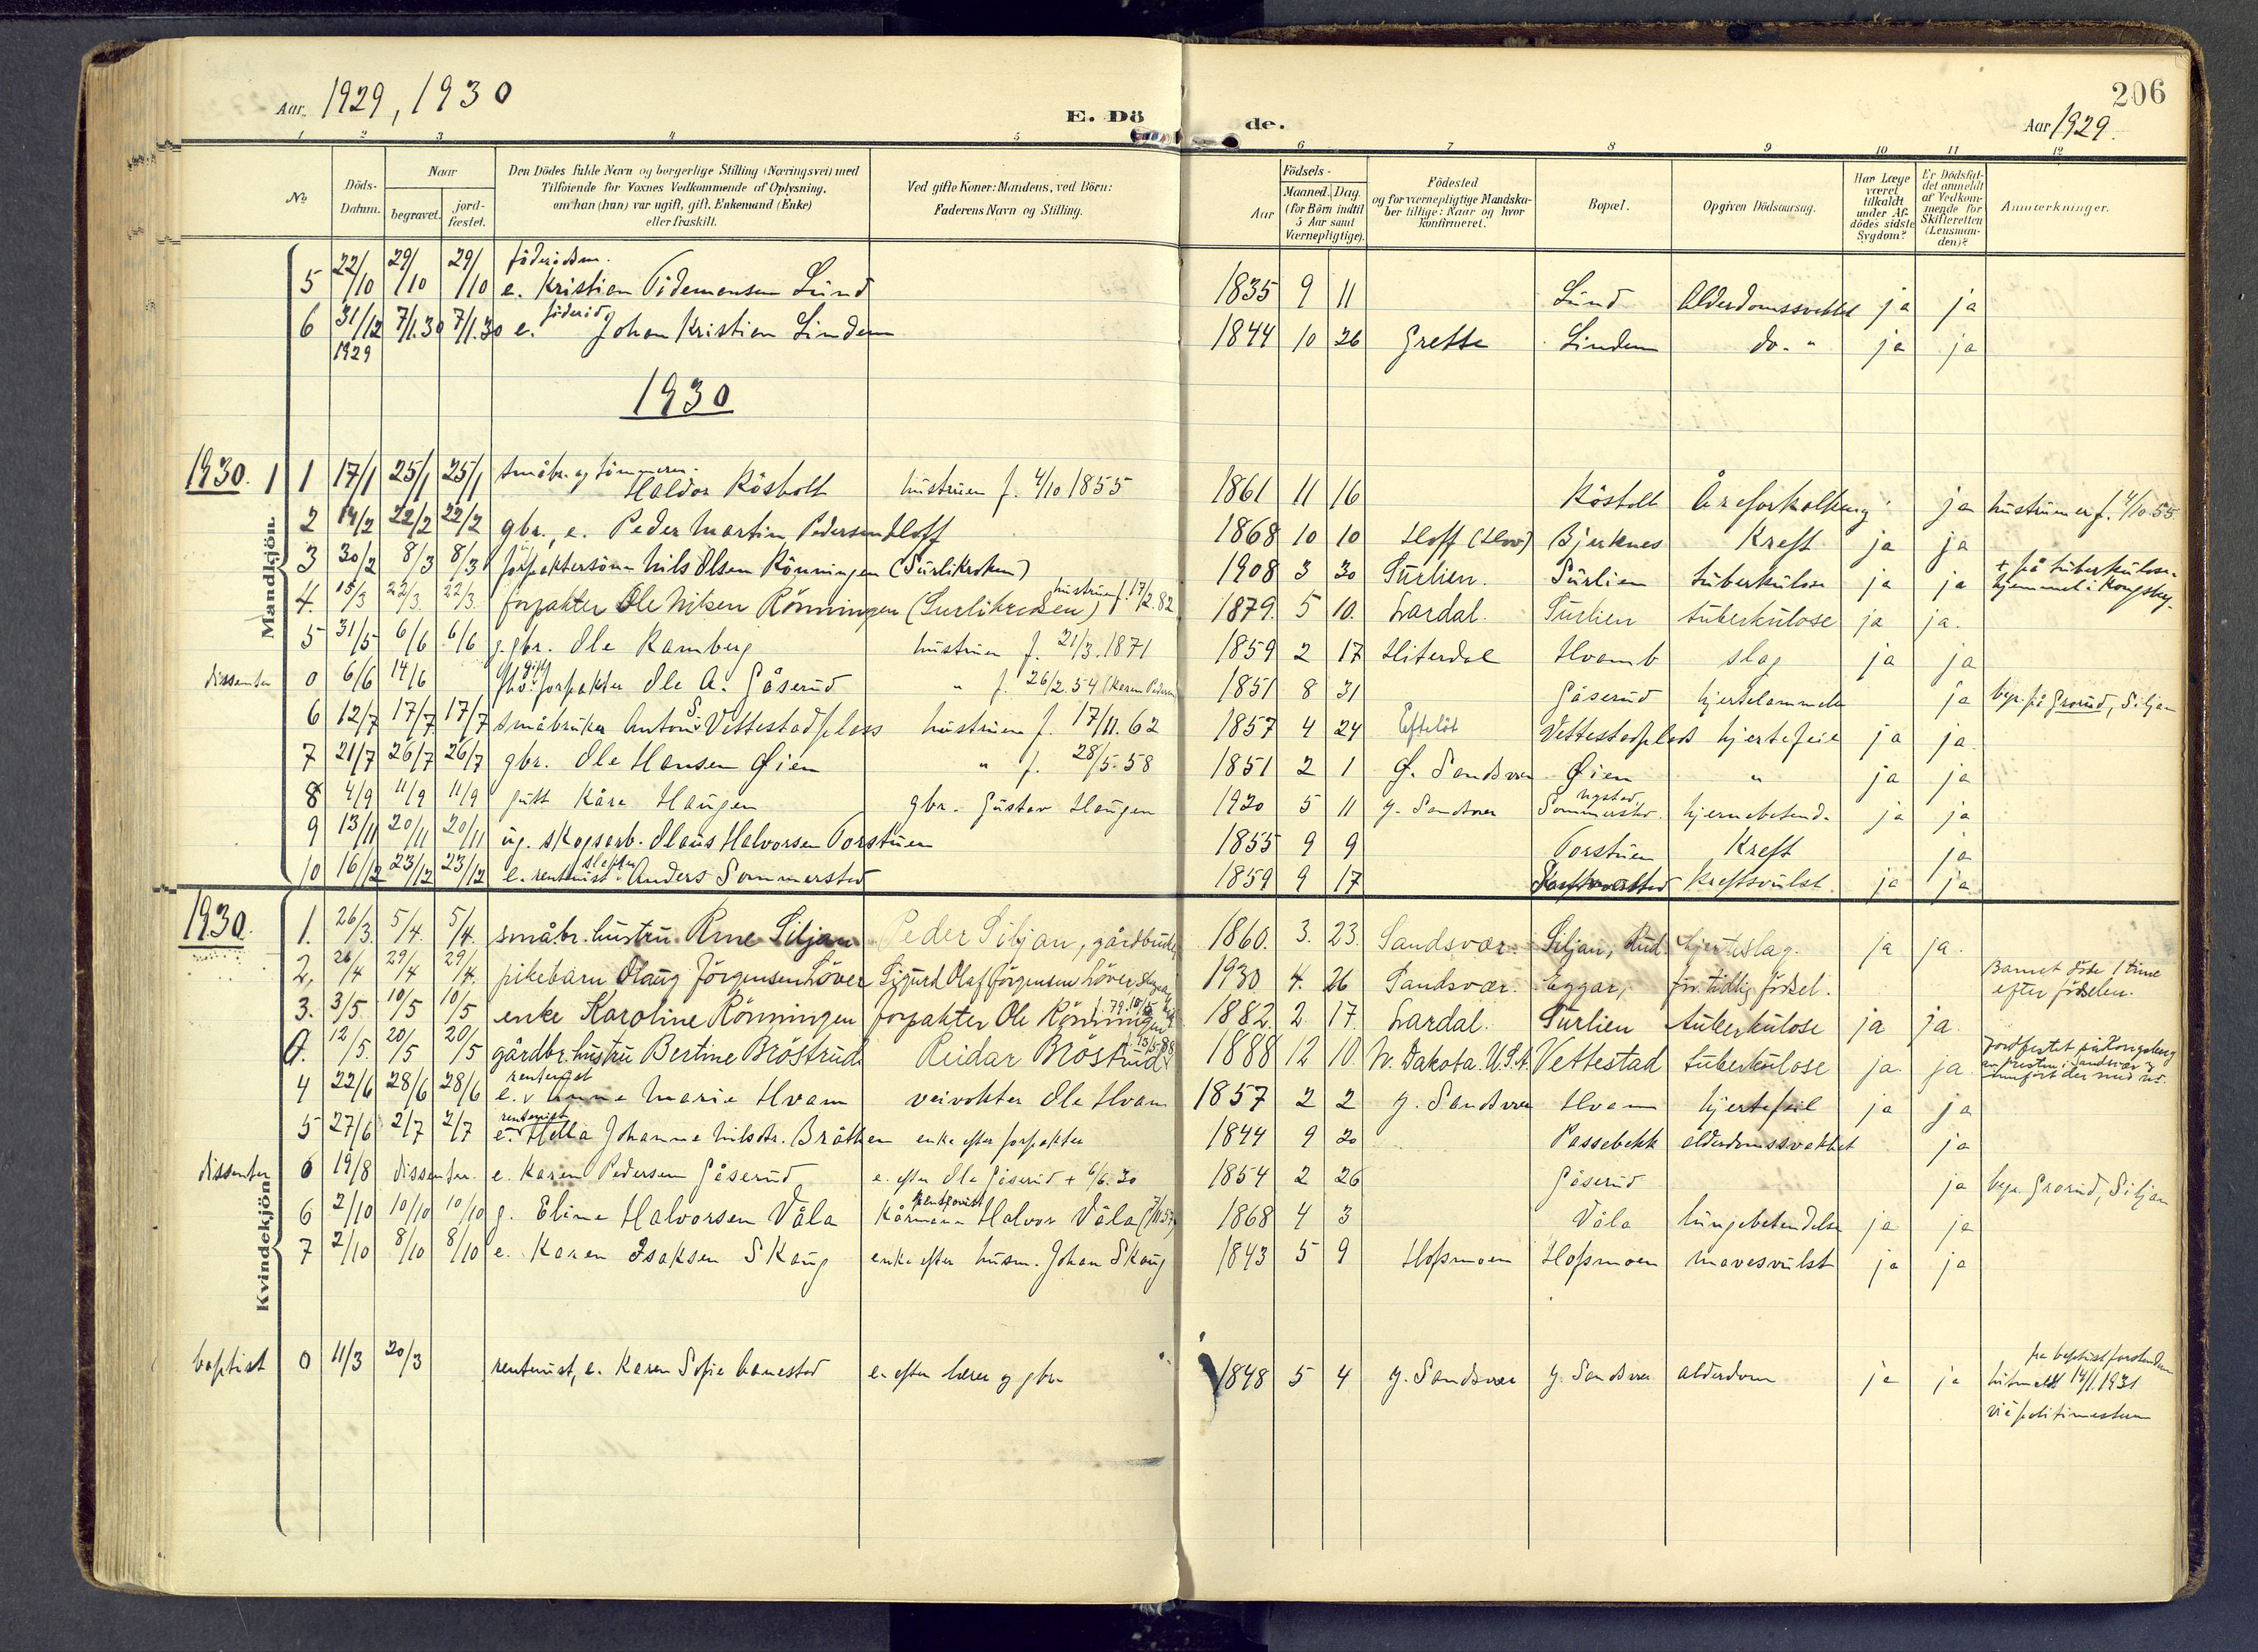 Aar 1929, 1930
E. Dö
de.
206
Aar 1929.
1 2 3 4 5 6 7 8 9 10 11 12
No
Döds-
Datum.
Naar
begravet.
jord-
fæstet.
Den Dödes fulde Navn og borgerlige Stilling (Næringsvei) med
Tilföiende for Voxnes Vedkommende af Oplysning,
om han (hun) var ugift, gift, Enkemand (Enke)
eller fraskilt.
Ved gifte Koner: Mandens, ved Börn:
Faderens Navn og Stilling.
Födsels-
Aar
Maaned. Dag.
(for Börn indtil
5 Aar samt
Værnepligtige).
Födested
og for værnepligtige Mandska-
ber tillige: Naar og hvor
konfirmeret.
Bopæl.
Opgiven Dödsaarsag.
Har Læge
været
tilkaldt
under Af-
dödes sidste
Sygdom?
Er Dödsfal-
det anmeldt
af Vedkom-
mende for
Skifteretten
(Lensman-
den)?
Anmerkninger.
Mandkjön.
5 22/10 29/10 29/10 e. Kristian Tidemansen Lund 1835 9 11 Lund Alderdomssvekket ja ja
6 31/12 1929 7/1.30 7/1.30 e. föderåd Johan Kristian Lindem 1844 10 26 Grette Lindem do. " ja ja
1930
1930. 1 1 17/1 25/1 25/1 småbr. og tömmerm. Haldor Råsholt hustruen f. 4/10 1855 1861 11 16 Råsholt Åreforkalkning ja hustruen er f. 4/10.55
2 14/2 22/2 22/2 gbr., e. Peder Martin Pedersen Hoff 1868 10 10 Hoff (Hov) Bjerknes Kreft ja ja
3 30/2 8/3 8/3 forpaktersönn Nils Olsen Rönningen (Surlikroken) 1908 3 30 Surlien. Surlien tuberkulose ja ja + på tuberkulose-
hjemmet i Kongsbg.
4. 15/3 22/3. 22/3. forpakter Ole Nilsen Rönningen (Surlikroken) hustruen f. 17/2.82 1879. 5 10. Lardal. Surlien tuberkulose ja ja.
5 31/5 6/6 6/6 g. gbr. Ole Ramberg hustruen f. 21/3.1871 1859 2 17 Hiterdal Hvamb slag ja ja
dissenter 0 6/6 14/6 gift forpakter Ole A. Gåserud " f. 26/2.54 (Karen Pedersen) 1851 8 31 Gåserud hjertelammelse ja begr. på Grorud, Siljan
6 12/7 17/7 17/7 småbruker Anton S. Vettestadplass hustruen f. 17/11.62 1857 4 24 Efteløt Vettestadplass hjertefeil ja ja.
7 21/7 26/7 26/7 gbr. Ole Hansen Øien " f. 28/5.58 1851 2 1 Ø. Sandsvær Øien " ja ja
8 4/9 11/9 11/9 gutt Kåre Haugen gbr. Gustav Haugen 1920 5 11 Y. Sandsvær Nystad Sommerstad. hjernebetend. ja ja
9 13/11 20/11 20/11 ug. skogsarb. Olaus Halvorsen Torstuen 1855 9 9 Torstuen Kreft ja
10 16/12 23/12 23/12 e. rentenist Anders Sommerstad 1859 9 17 Kreftsvulst ja ja
Kvindekjön.
1930. 1. 26/3. 5/4. 5/4. småbr. hustru Ane Siljan Peder Siljan, gårdbruker 1860. 3. 23. Sandsvær. Siljan, Lud. hjerteslag. ja ja.
2. 26/4 29/4 29/4. pikebarn Olaug Jörgensen Löver Sigurd Olaf Jörgensen Löver 1930 4. 26 Sandsvær. Eggar, for tidlig födsel. Barnet döde 1 time
efter födselen.
3. 3/5. 10/5 10/5 enke Karoline Rönningen forpakter Ole Rönningen 1882. 2 17. Lardal. Surlien tuberkulose ja ja.
0. 12/5. 20/5 20/5 gårdbr. hustru Bertine Bröstrud Reidar Bröstrud 1888 12 10. N. Dakota. U.S.A. Vettestad tuberkulose ja. ja. Jordfestet på Kongsberg
av presten i Sandsvær og
4 22/6 28/6 28/6 rentenist e. v Anne Marie Hvam veivokter Ole Hvam 1857 2 2 Y. Sandsvær Hvam hjertefeil ja ja
5 27/6 2/7 2/7 rentenist e. Hella Johanne Nilsdtr. Bråthen enke efter forpakter 1844 9 20 Passebekk alderdomssvakhet ja
dissenter 0 19/8 dissenter. e. Karen Pedersen Gåserud e. efter Ole Gåserud + 6/6.30 1854 2 26 Gåserud ja begr. Grorud, Siljan
6 2/10 10/10 10/10 g. Eline Halvorsen Våla Kårmann Halvor Våla (7/11 57) 1868 4 3 Våla lungebetendelse ja ja
7 2/10 8/10 8/10 e. Karen Isaksen Skaug enke efter husm. Johan Skaug 1843 5 9 Hofsmoen Hofsmoen mavesvulst ja ja
baptist 0 11/3 20/3 rentenist, e. Karen Sofie e. efter lærer og gbr. 1848 5 4 Y. Sandsvær Y. Sandsvær alderdom ja ja fra baptistforstander
utmeldt 14/1.1931
via politimesteren